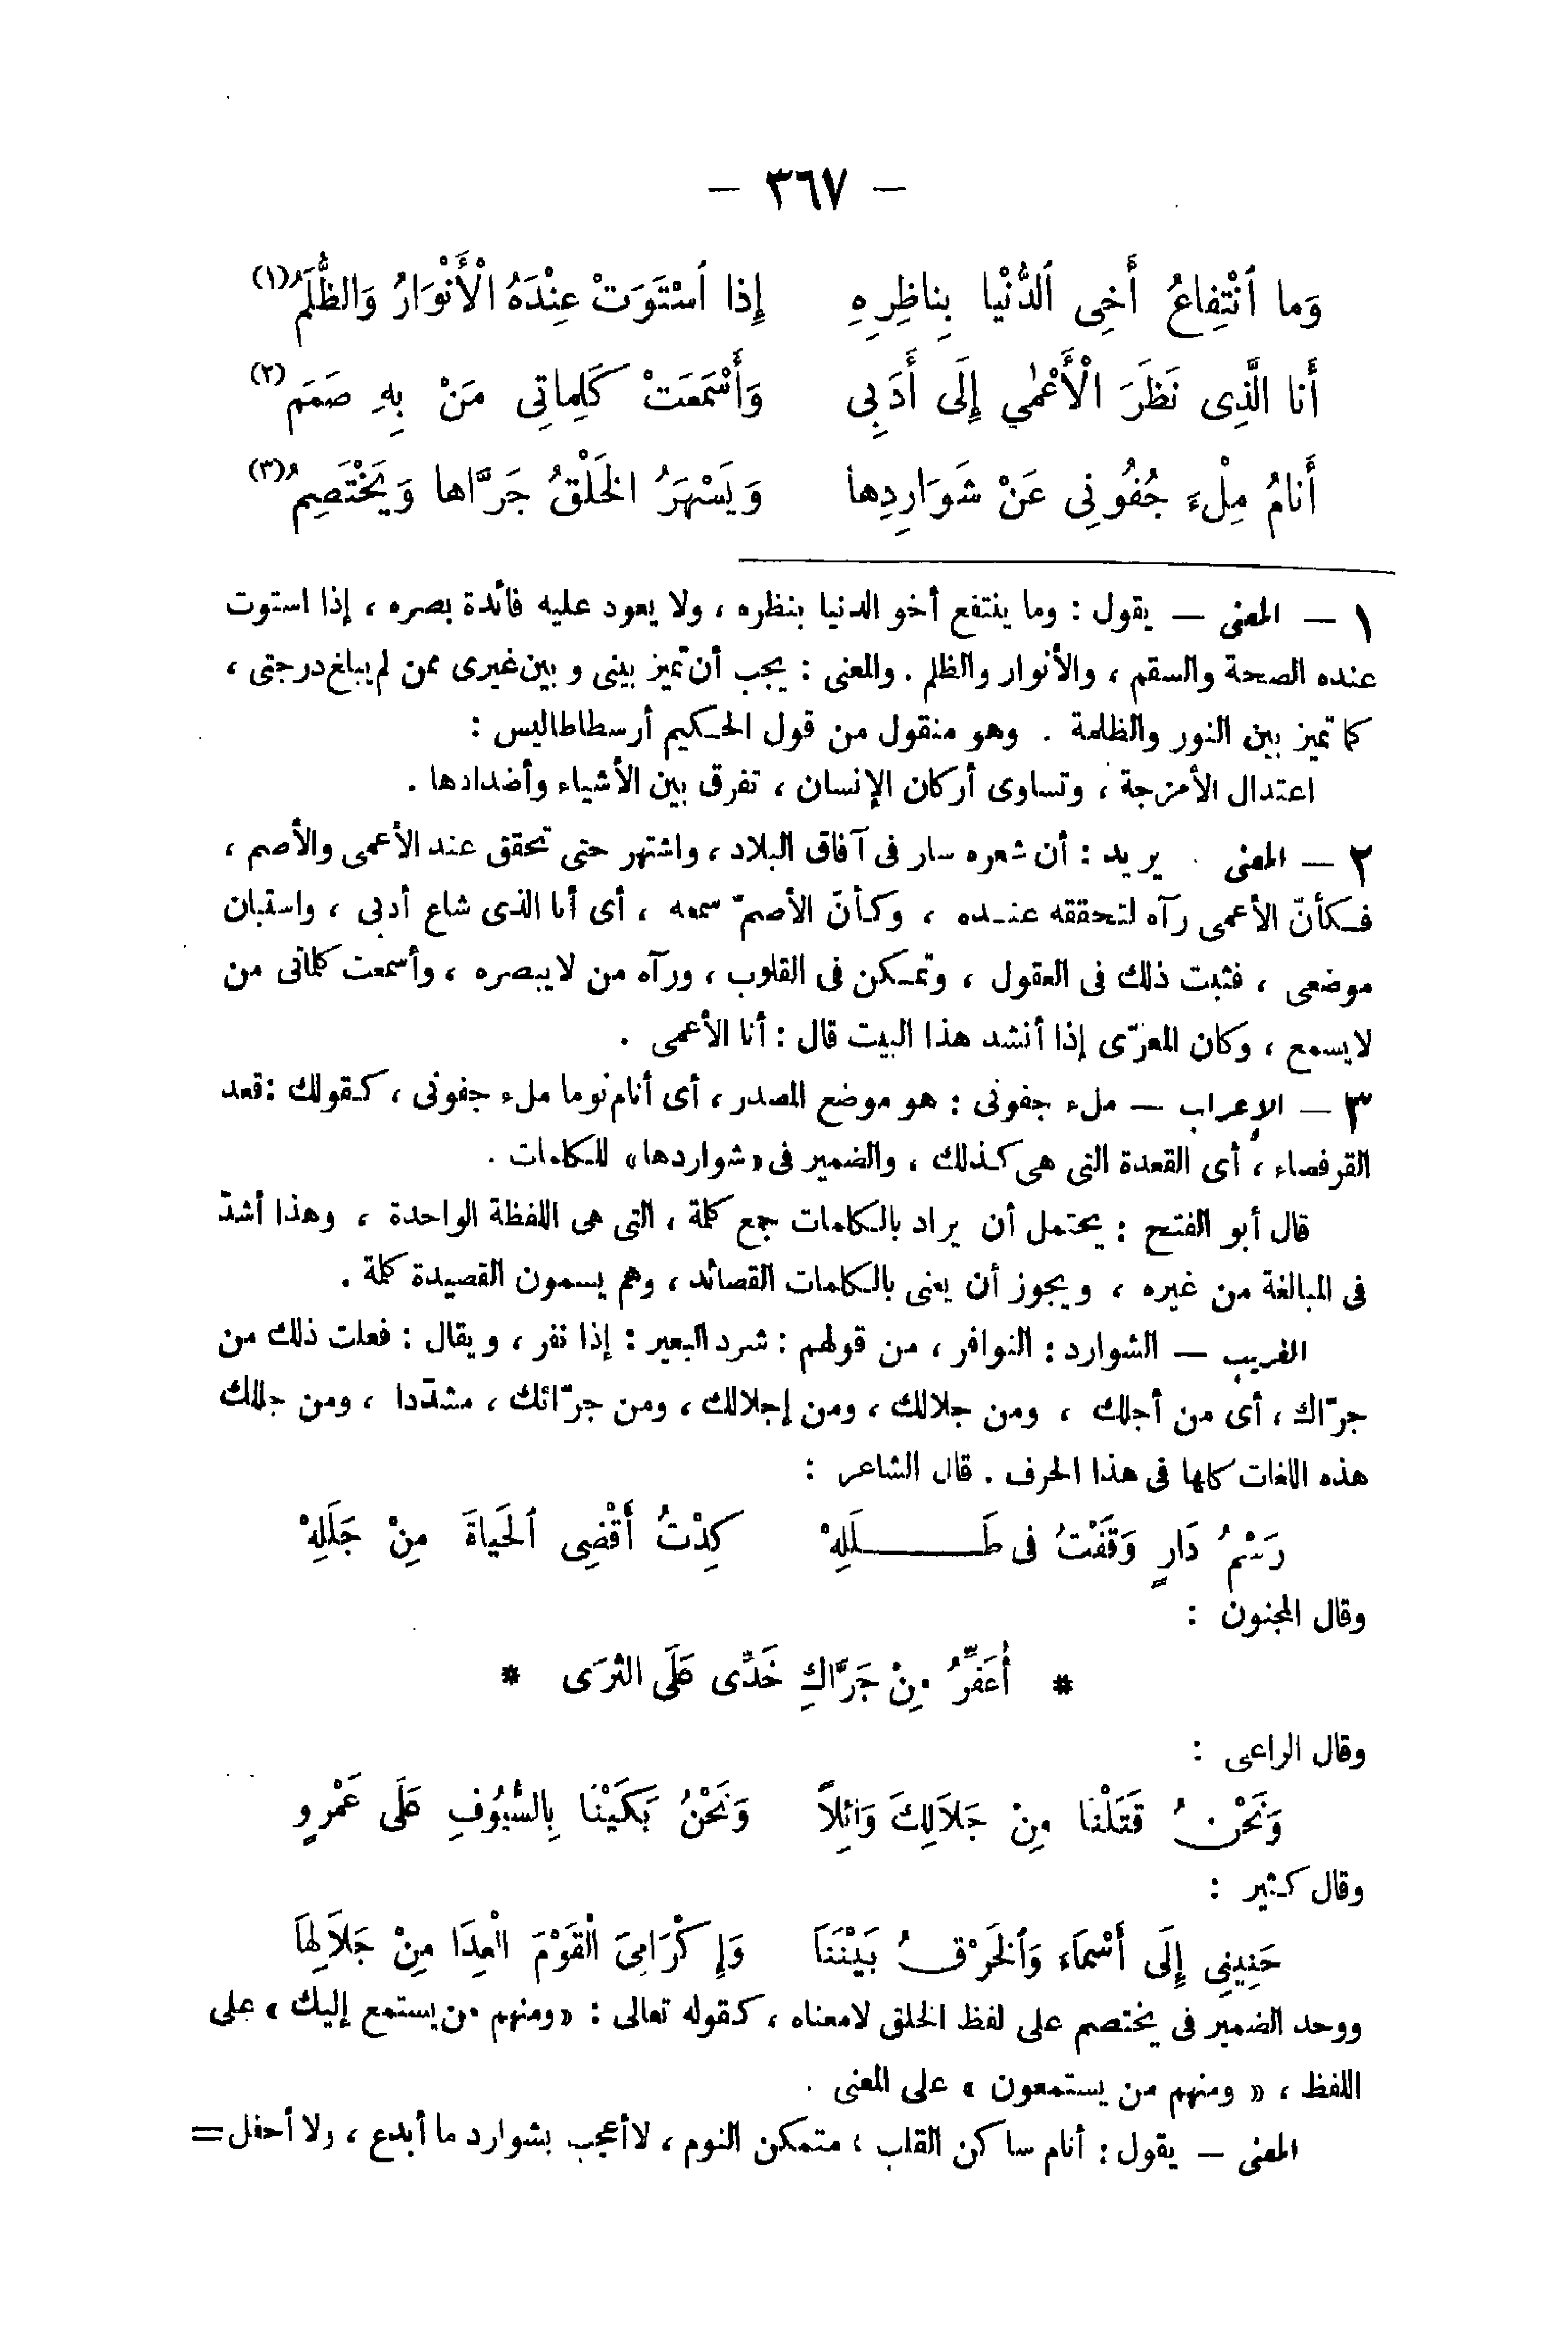 — ٣٦٧ —
وَما ٱنْتِفاعُ أَخِى ٱلدُّنْيا بِناظِرِهِ إِذا ٱسْتَوَتْ عِنْدَهُ الْأَنْوَارُ وَالظُّلَمُ (١)
أَنا الَّذِى نَظَرَ الْأَعْمٰى إِلَى أَدَبِى وَأَسْمَعَتْ كَلِماتِى مَنْ بِهِ صَمَمُ (٢)
أَنامُ مِلْءَ جُفُونِى عَنْ شَوَارِدِها وَيَسْهَرُ الخَلْقُ جَرَّاها وَيَخْتَصِمُ (٣)
١ — المعنى — يقول : وما ينتفع أخو الدنيا بنظره ، ولا يعود عليه فائدة بصره ، إذا استوت
عنده الصحة والسقم ، والأنوار والظلم . والمعنى : يجب أن تميز بينى وبين غيرى ممن لم يبلغ درجتى ،
كما تميز بين النور والظلمة . وهو منقول من قول الحكيم أرسطاطاليس :
اعتدال الأمزجة ، وتساوى أركان الإنسان ، تفرق بين الأشياء وأضدادها .
٢ — المعنى . يريد : أن شعره سار فى آفاق البلاد ، واشتهر حتى تحقق عند الأعمى والأصم ،
فكأنّ الأعمى رآه لتحققه عنده ، وكأنّ الأصمّ سمعه ، أى أنا الذى شاع أدبى ، واستبان
موضعى ، فثبت ذلك فى العقول ، وتمكن فى القلوب ، ورآه من لا يبصره ، وأسمعت كلماتى من
لا يسمع ، وكان المعرّى إذا أنشد هذا البيت قال : أنا الأعمى .
٣ — الإعراب — ملء جفونى : هو موضع المصدر ، أى أنام نوما ملء جفونى ، كقولك : قعد
القرفصاء ، أى القعدة التى هى كذلك ، والضمير فى «شواردها» للكلمات .
قال أبو الفتح : يحتمل أن يراد بالكلمات جمع كلمة ، التى هى اللفظة الواحدة ، وهذا أشدّ
فى المبالغة من غيره ، ويجوز أن يعنى بالكلمات القصائد ، وهم يسمون القصيدة كلمة .
الغريب — الشوارد : النوافر ، من قولهم : شرد البعير : إذا نفر ، ويقال : فعلت ذلك من
جرّاك ، أى من أجلك ، ومن جلالك ، ومن إجلالك ، ومن جرّائك ، مشدّدا ، ومن جللك
هذه اللغات كلها فى هذا الحرف . قال الشاعر :
رَسْمُ دَارٍ وَقَفْتُ فى طَلَلِهْ كِدْتُ أَقْضِى ٱلحَياةَ مِنْ جَلَلِهْ
وقال المجنون :
* أُعَفِّرُ مِنْ جَرَّاكِ خَدِّى عَلَى الثرَى *
وقال الراعى :
وَنَحْنُ قَتَلْنا مِنْ جَلاَلِكَ وَائِلاً وَنَحْنُ بَكَيْنَا بِالسُّيُوُفِ عَلَى عَمْرِو
وقال كثير :
حَنِينِى إِلَى أَسْمَاءَ وَٱلخَرْقُ بَيْنَنَا وَإِكْرَامِىَ الْقَوْمَ الْعِدَا مِنْ جَلاَلِهَا
ووحد الضمير فى يختصم على لفظ الخلق لا معناه ، كقوله تعالى : «ومنهم من يستمع إليك» على
اللفظ ، « ومنهم من يستمعون » على المعنى .
المعنى — يقول : أنام ساكن القلب ، متمكن النوم ، لا أعجب بشوارد ما أبدع ، ولا أحفل =